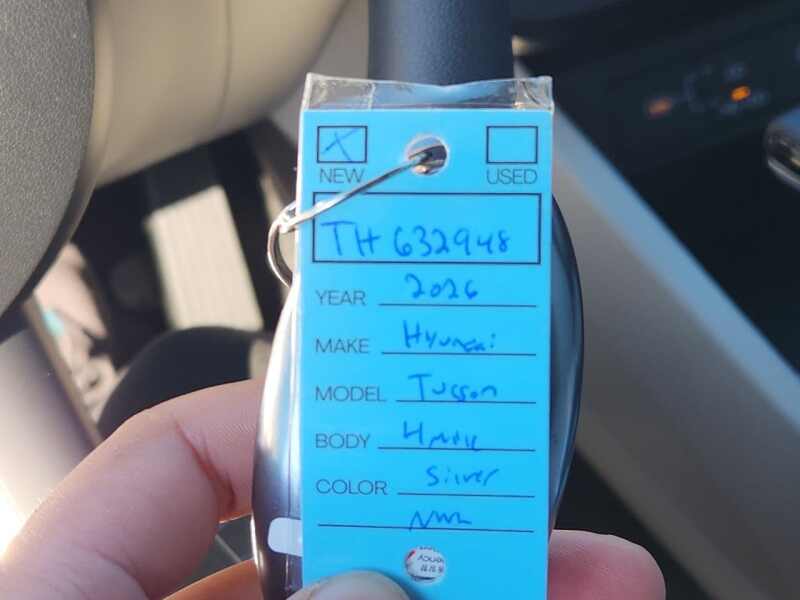 NEW USED
TH632948
YEAR 2026
MAKE Hyundai
MODEL Tucson
BODY
COLOR Silver